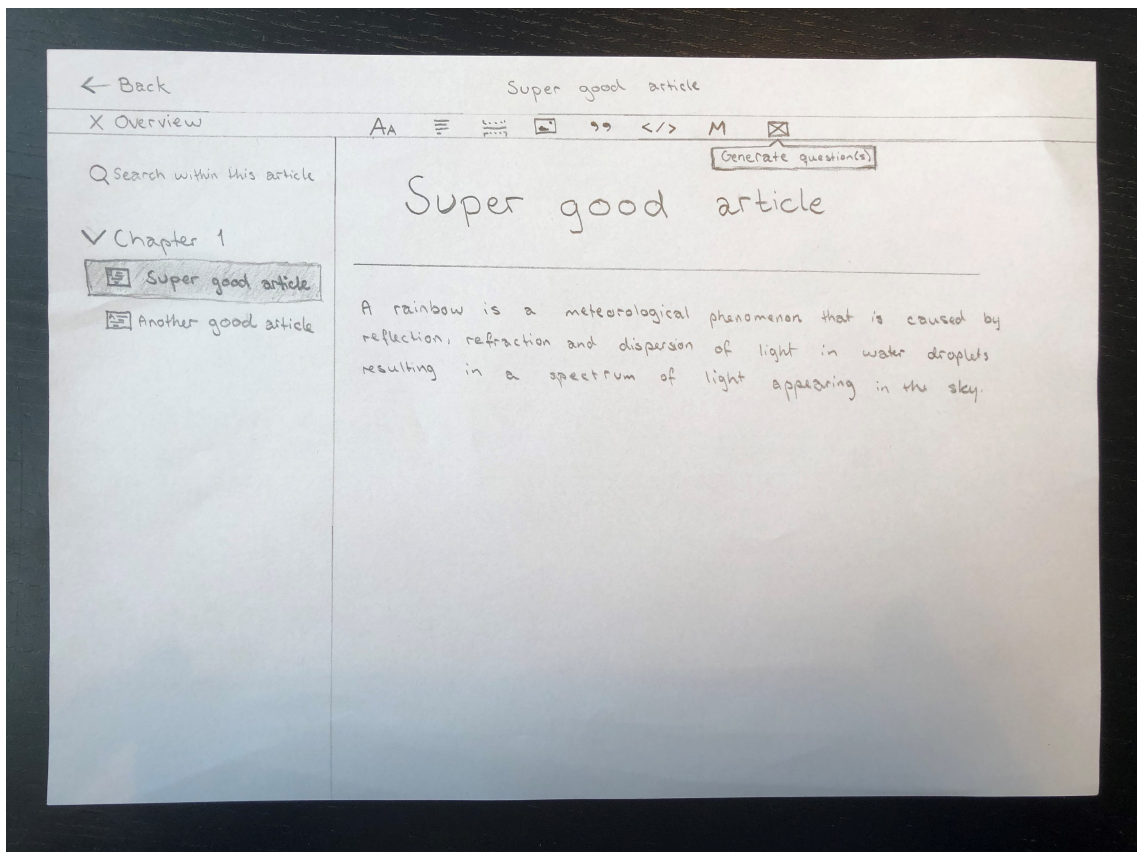 ← Back
Super good article
X Overview
AA
,,
</>
M
Generate question(s)
Search within this article
Super good article
Chapter 1
Super good article
Another good article
A rainbow is a meteorological phenomenon that is caused by
reflection, refraction and dispersion of light in water droplets
resulting in a spectrum of light appearing in the sky.